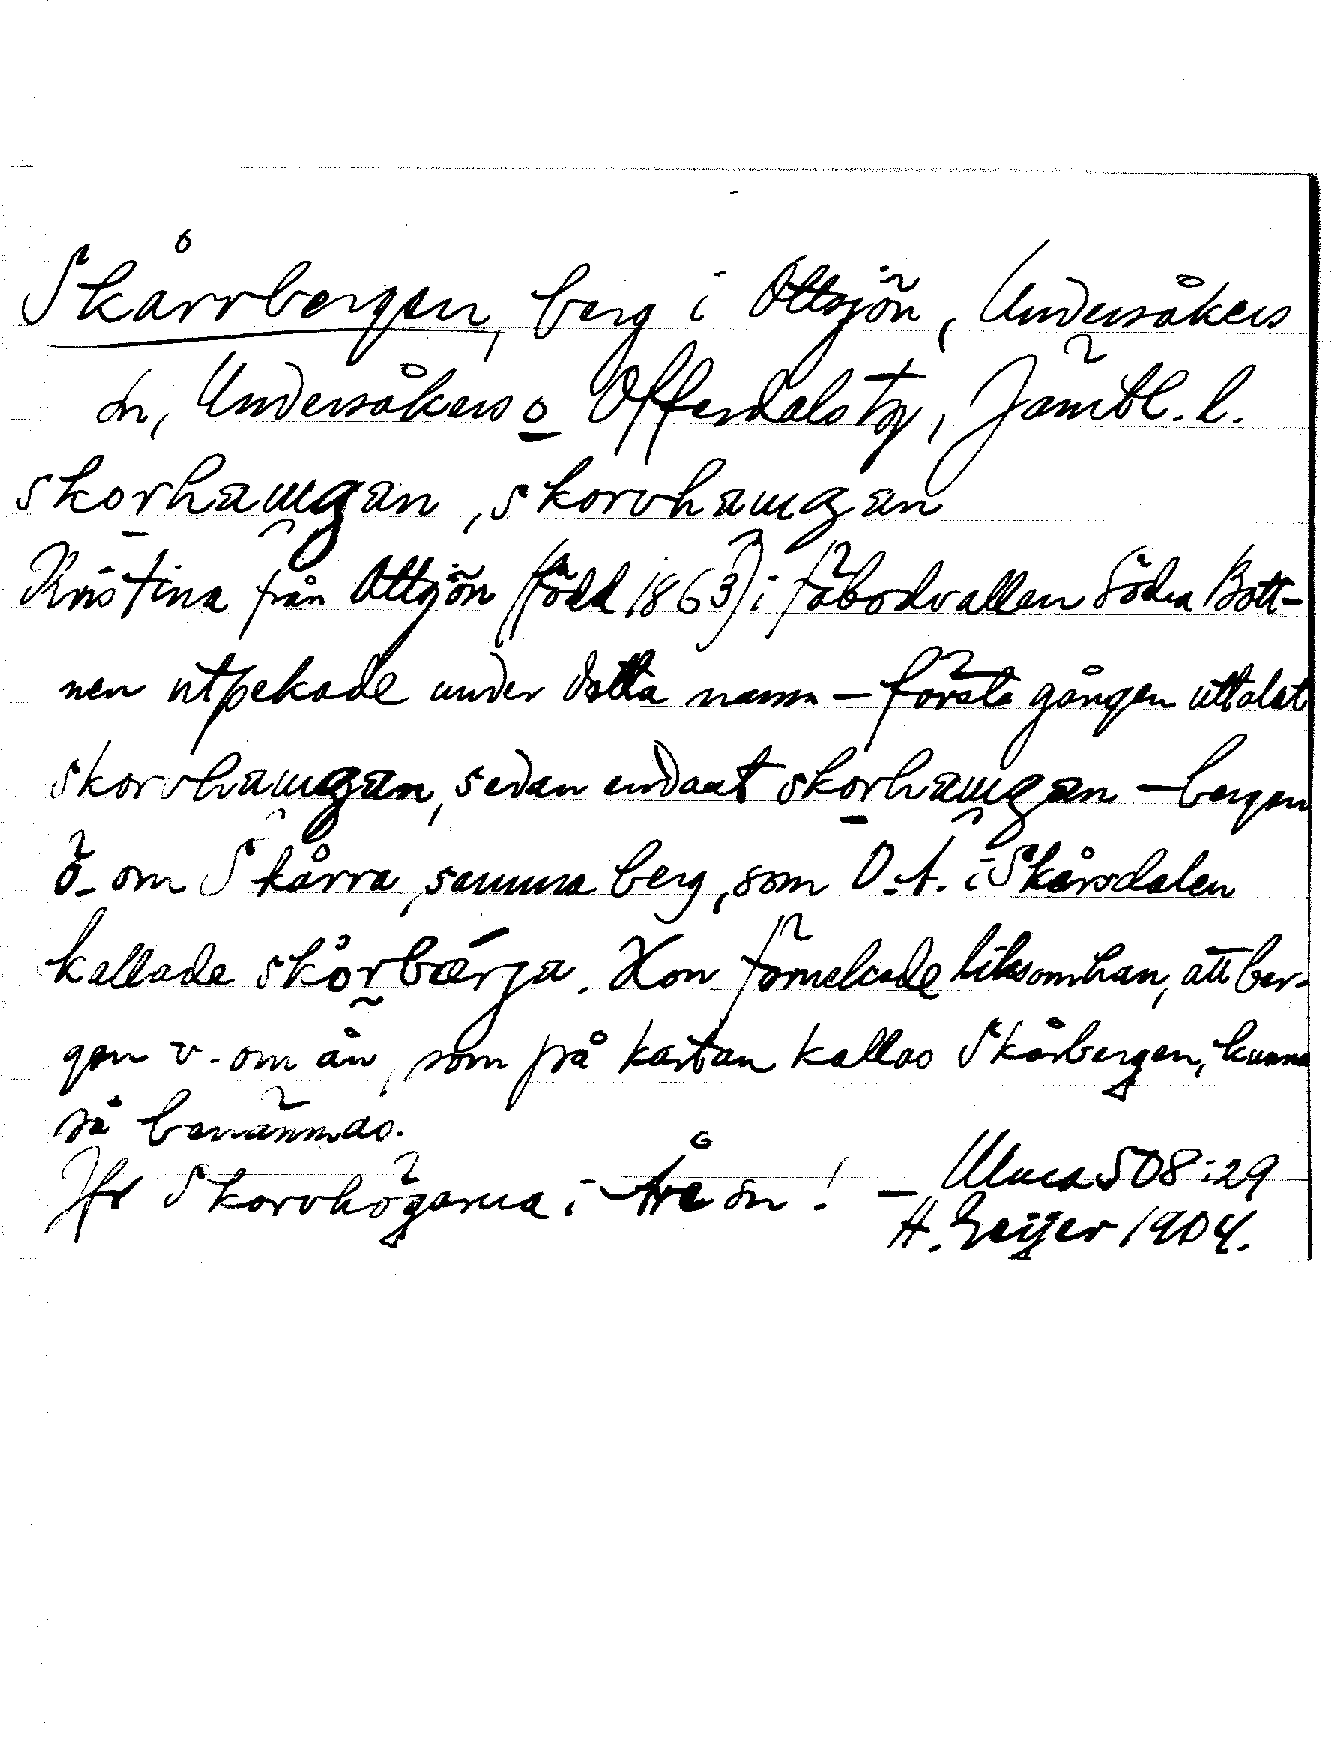 Skårrbergen, berg i Ottsjön, Undersåkers
sn, Undersåkers o Offerdals tg, Jämtl. l.
skorhaugan, skorvhaugan
Kristina från Ottsjön (född 1863) i fäbodvallen Södra Bott-
nen utpekade under detta namn – första gången uttalat
skorvhaugan, sedan endast skorhaugan – bergen
ö. om Skårra, samma berg, som O. A. i Skårsdalen
kallade skårbærja. Hon förnekade liksom han, att ber-
gen v. om ån, som på kartan kallas Skårbergen, kunna
så benämnas.
Jfr Skorvhögarna i Åre sn! – Uluca 508:29
H. Geijer 1904.